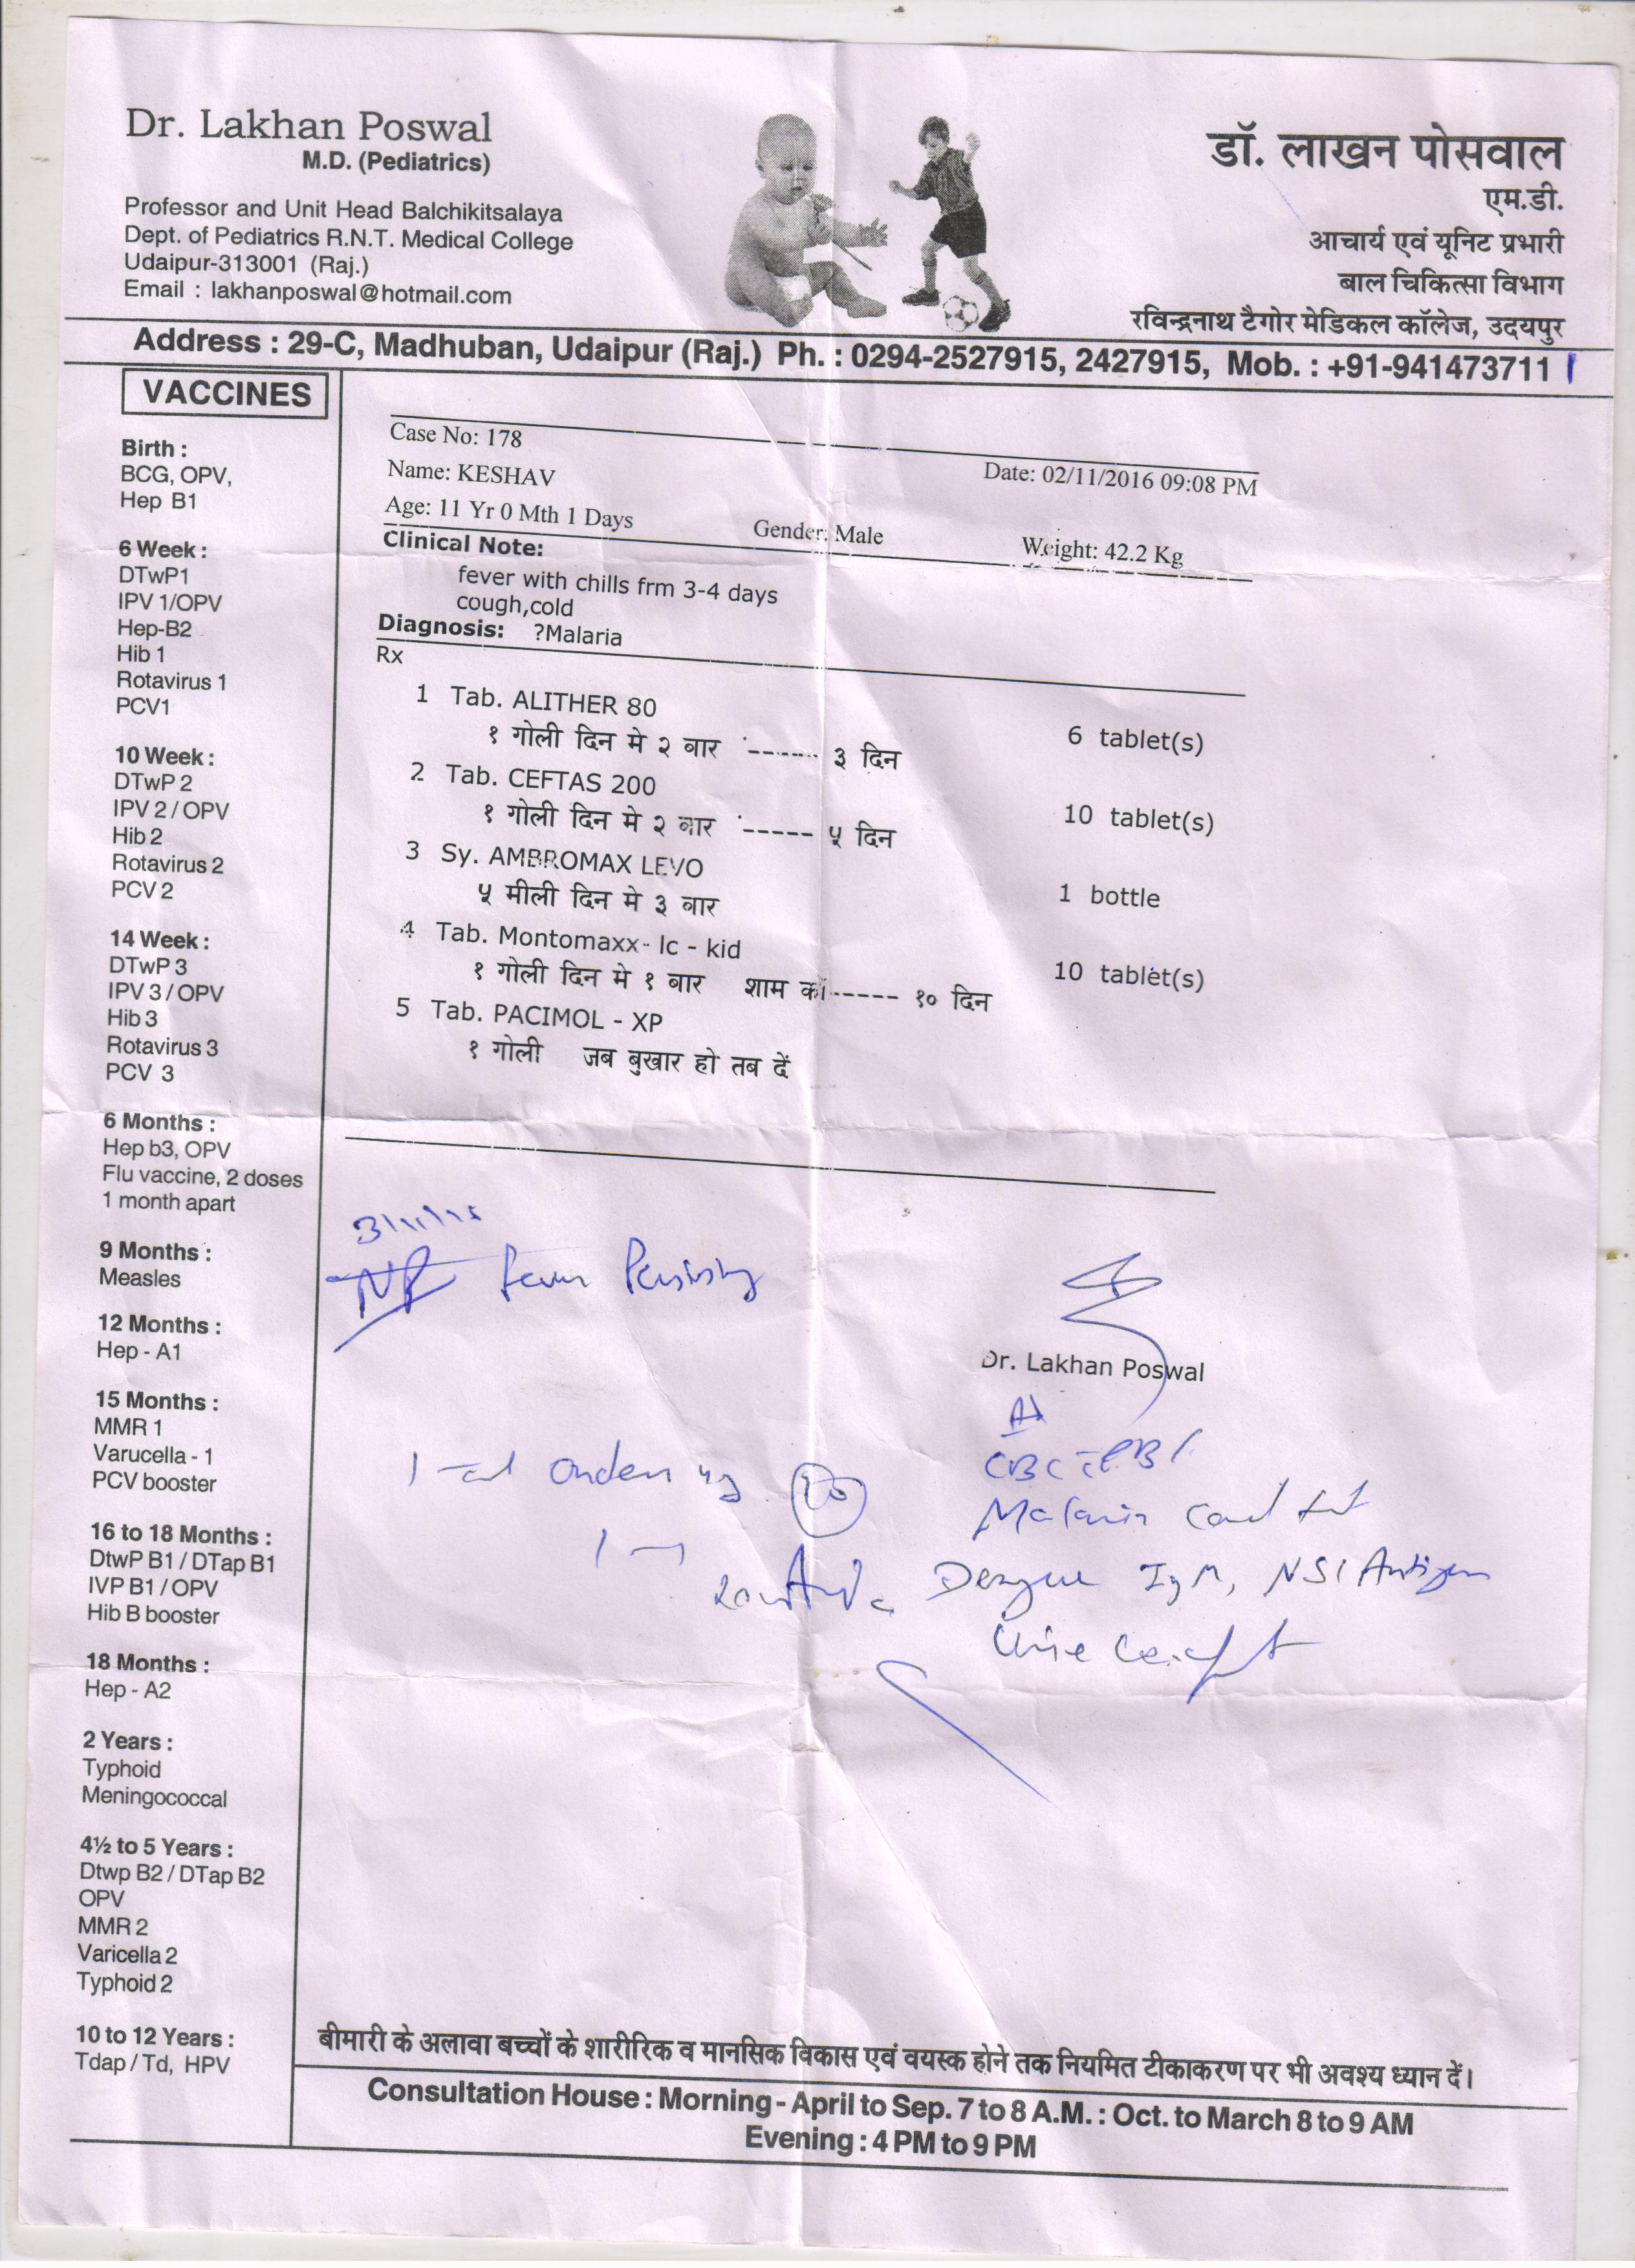 Dr. Lakhan Poswal
M.D. (Pediatrics)
Professor and Unit Head Balchikitsalaya
Dept. of Pediatrics R.N.T. Medical College
Udaipur-313001 (Raj.)
Email : lakhanposwal@hotmail.com
डॉ. लाखन पोसवाल
एम.डी.
आचार्य एवं यूनिट प्रभारी
बाल चिकित्सा विभाग
रविन्द्रनाथ टैगोर मेडिकल कॉलेज, उदयपुर
Address : 29-C, Madhuban, Udaipur (Raj.) Ph. : 0294-2527915, 2427915, Mob. : +91-941473711 1
VACCINES
Birth :
BCG, OPV,
Hep B1
6 Week :
DTwP1
IPV 1/OPV
Hep-B2
Hib 1
Rotavirus 1
PCV1
10 Week :
DTwP 2
IPV 2 / OPV
Hib 2
Rotavirus 2
PCV 2
14 Week :
DTwP 3
IPV 3 / OPV
Hib 3
Rotavirus 3
PCV 3
6 Months :
Hep b3, OPV
Flu vaccine, 2 doses
1 month apart
9 Months :
Measles
12 Months :
Hep - A1
15 Months :
MMR 1
Varucella - 1
PCV booster
16 to 18 Months :
DtwP B1 / DTap B1
IVP B1 / OPV
Hib B booster
18 Months :
Hep - A2
2 Years :
Typhoid
Meningococcal
4½ to 5 Years :
Dtwp B2 / DTap B2
OPV
MMR 2
Varicella 2
Typhoid 2
10 to 12 Years :
Tdap / Td, HPV
Case No: 178
Name: KESHAV Date: 02/11/2016 09:08 PM
Age: 11 Yr 0 Mth 1 Days Gender: Male Weight: 42.2 Kg
Clinical Note:
fever with chills frm 3-4 days
cough,cold
Diagnosis: ?Malaria
Rx
1 Tab. ALITHER 80
१ गोली दिन मे २ बार ------ ३ दिन 6 tablet(s)
2 Tab. CEFTAS 200
१ गोली दिन मे २ बार ----- ५ दिन 10 tablet(s)
3 Sy. AMBROMAX LEVO
५ मीली दिन मे ३ बार 1 bottle
4 Tab. Montomaxx- lc - kid
१ गोली दिन मे १ बार शाम को ----- १० दिन 10 tablet(s)
5 Tab. PACIMOL - XP
१ गोली जब बुखार हो तब दें
Fever Persisting
Dr. Lakhan Poswal
CBC
Malaria Card test
Dengue IgM, NS1 Antigen
Urine
बीमारी के अलावा बच्चों के शारीरिक व मानसिक विकास एवं वयस्क होने तक नियमित टीकाकरण पर भी अवश्य ध्यान दें।
Consultation House : Morning - April to Sep. 7 to 8 A.M. : Oct. to March 8 to 9 AM
Evening : 4 PM to 9 PM